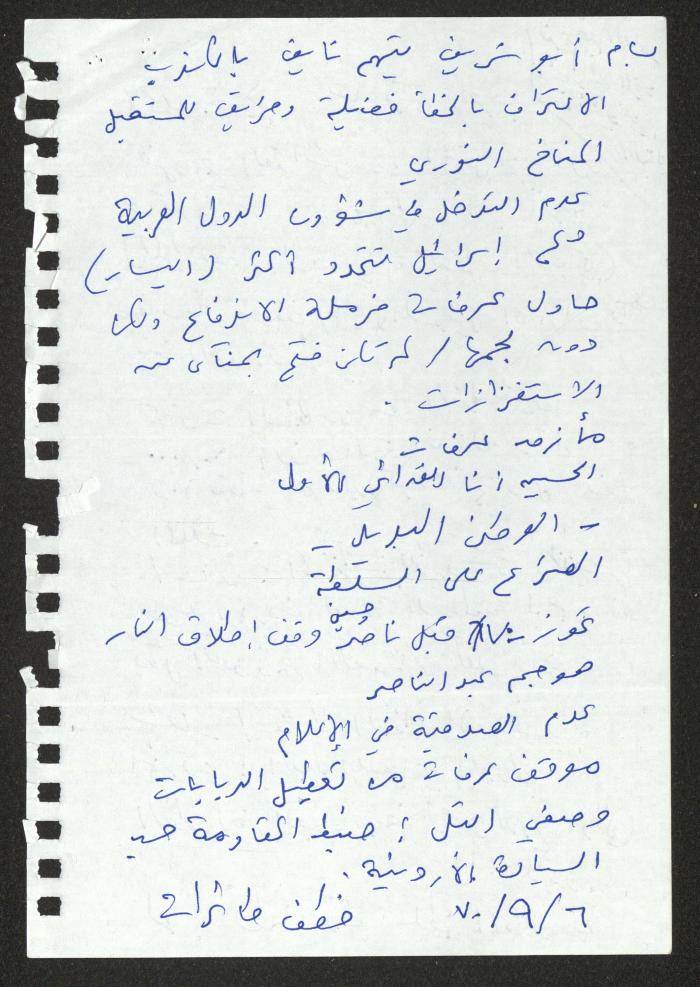 بسام أبو شريف يتهم نايف بالكذب
الاعتراف بالخطأ فضيلة وطريق للمستقبل
المناخ الثوري
عدم التدخل في شؤون الدول العربية
دعم إسرائيل تتمدد أكثر (اليسار)
حاول عرفات فرملة الاندفاع ولكن
دون لجمها / لم تكن فتح بمنأى عن
الاستفزازات .
مأزق عرفات
الحسين أنا الفدائي الأول
- الوطن البديل -
الصراع على السلطة
تموز ٧٠ قبل ناصر وقف إطلاق النار
هوجم عبد الناصر
عدم الصدقية في الإعلام
موقف عرفات من تعطيل الدبابات
وصفي التل : ضبط المقاومة ضمن
السيادة الأردنية .
٦/٩/٧٠ خطف طائرات